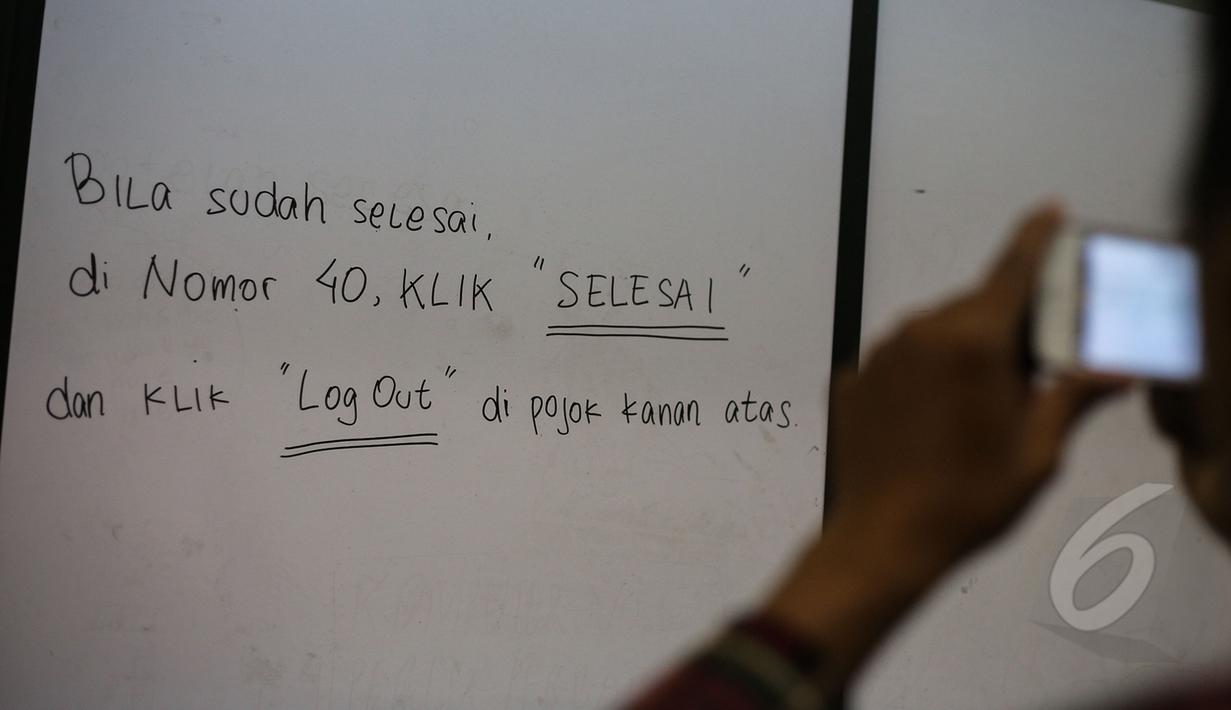 BILa sudah selesai,
di Nomor 40, KLIK "SELESAI"
dan KLIK "Log Out" di pojok kanan atas.
6